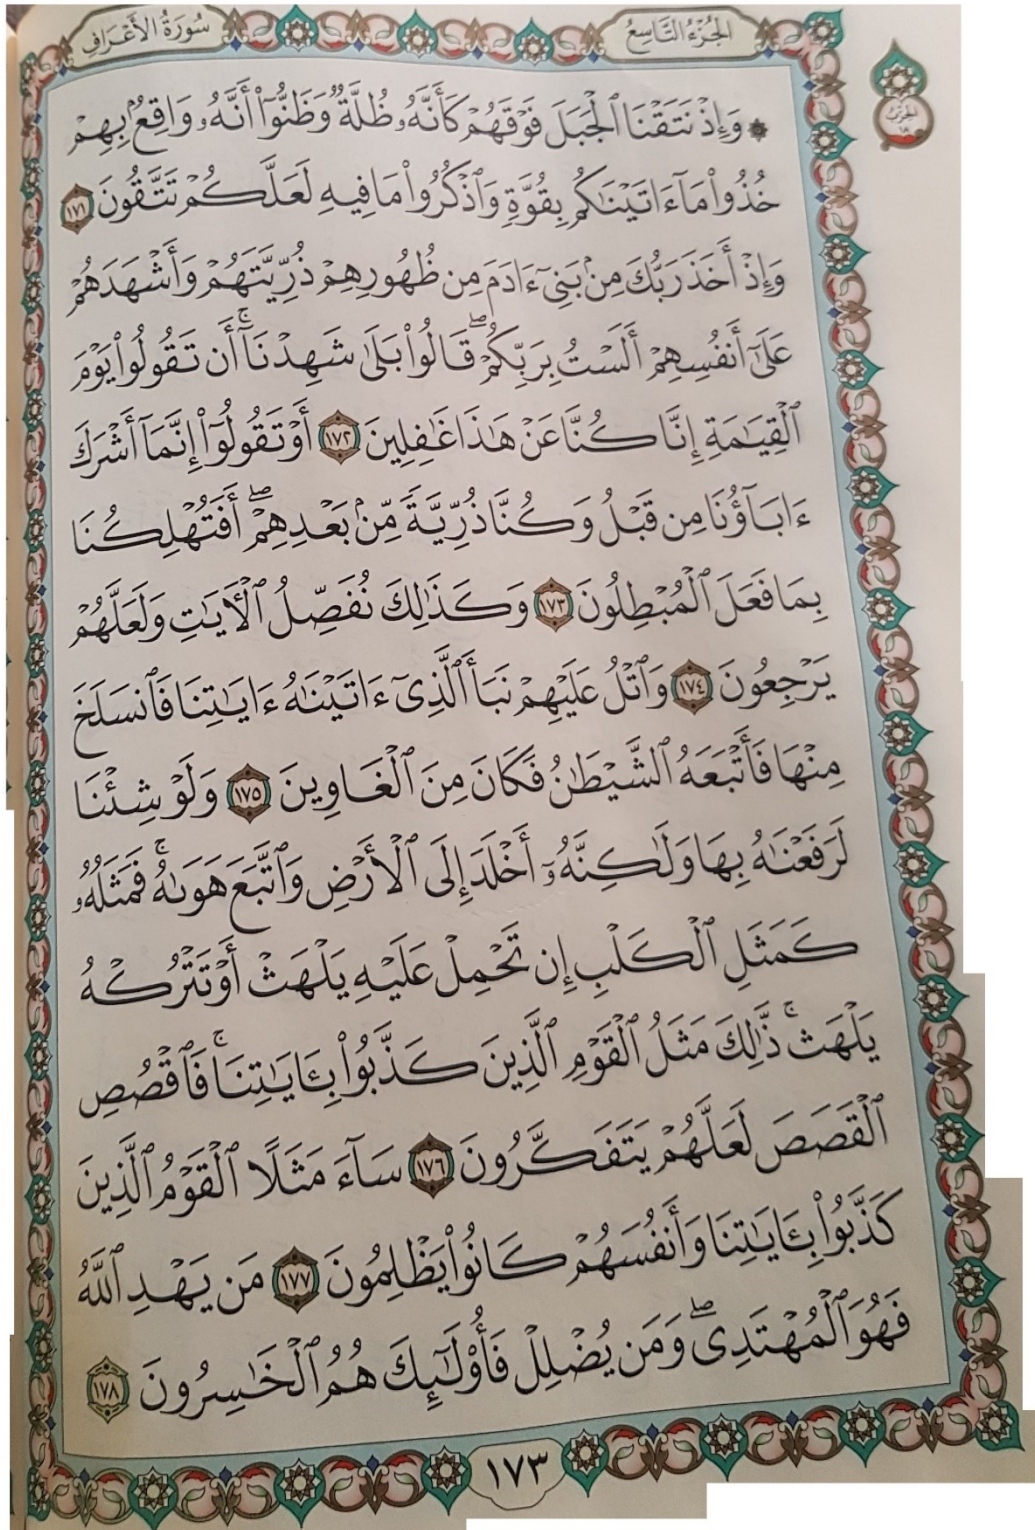 سُورَةُ الأَعْرَافِ
الجُزْءُ التَّاسِعُ
الحِزْبُ ١٨
۞ وَإِذۡ نَتَقۡنَا ٱلۡجَبَلَ فَوۡقَهُمۡ كَأَنَّهُۥ ظُلَّةٞ وَظَنُّوٓاْ أَنَّهُۥ وَاقِعُۢ بِهِمۡ
خُذُواْ مَآ ءَاتَيۡنَٰكُم بِقُوَّةٖ وَٱذۡكُرُواْ مَا فِيهِ لَعَلَّكُمۡ تَتَّقُونَ ١٧١
وَإِذۡ أَخَذَ رَبُّكَ مِنۢ بَنِيٓ ءَادَمَ مِن ظُهُورِهِمۡ ذُرِّيَّتَهُمۡ وَأَشۡهَدَهُمۡ
عَلَىٰٓ أَنفُسِهِمۡ أَلَسۡتُ بِرَبِّكُمۡۖ قَالُواْ بَلَىٰ شَهِدۡنَآۚ أَن تَقُولُواْ يَوۡمَ
ٱلۡقِيَٰمَةِ إِنَّا كُنَّا عَنۡ هَٰذَا غَٰفِلِينَ ١٧٢ أَوۡ تَقُولُوٓاْ إِنَّمَآ أَشۡرَكَ
ءَابَآؤُنَا مِن قَبۡلُ وَكُنَّا ذُرِّيَّةٗ مِّنۢ بَعۡدِهِمۡۖ أَفَتُهۡلِكُنَا
بِمَا فَعَلَ ٱلۡمُبۡطِلُونَ ١٧٣ وَكَذَٰلِكَ نُفَصِّلُ ٱلۡأٓيَٰتِ وَلَعَلَّهُمۡ
يَرۡجِعُونَ ١٧٤ وَٱتۡلُ عَلَيۡهِمۡ نَبَأَ ٱلَّذِيٓ ءَاتَيۡنَٰهُ ءَايَٰتِنَا فَٱنسَلَخَ
مِنۡهَا فَأَتۡبَعَهُ ٱلشَّيۡطَٰنُ فَكَانَ مِنَ ٱلۡغَاوِينَ ١٧٥ وَلَوۡ شِئۡنَا
لَرَفَعۡنَٰهُ بِهَا وَلَٰكِنَّهُۥٓ أَخۡلَدَ إِلَى ٱلۡأَرۡضِ وَٱتَّبَعَ هَوَىٰهُۚ فَمَثَلُهُۥ
كَمَثَلِ ٱلۡكَلۡبِ إِن تَحۡمِلۡ عَلَيۡهِ يَلۡهَثۡ أَوۡ تَتۡرُكۡهُ
يَلۡهَثۚ ذَّٰلِكَ مَثَلُ ٱلۡقَوۡمِ ٱلَّذِينَ كَذَّبُواْ بِـَٔايَٰتِنَاۚ فَٱقۡصُصِ
ٱلۡقَصَصَ لَعَلَّهُمۡ يَتَفَكَّرُونَ ١٧٦ سَآءَ مَثَلًا ٱلۡقَوۡمُ ٱلَّذِينَ
كَذَّبُواْ بِـَٔايَٰتِنَا وَأَنفُسَهُمۡ كَانُواْ يَظۡلِمُونَ ١٧٧ مَن يَهۡدِ ٱللَّهُ
فَهُوَ ٱلۡمُهۡتَدِيۖ وَمَن يُضۡلِلۡ فَأُوْلَٰٓئِكَ هُمُ ٱلۡخَٰسِرُونَ ١٧٨
١٧٣